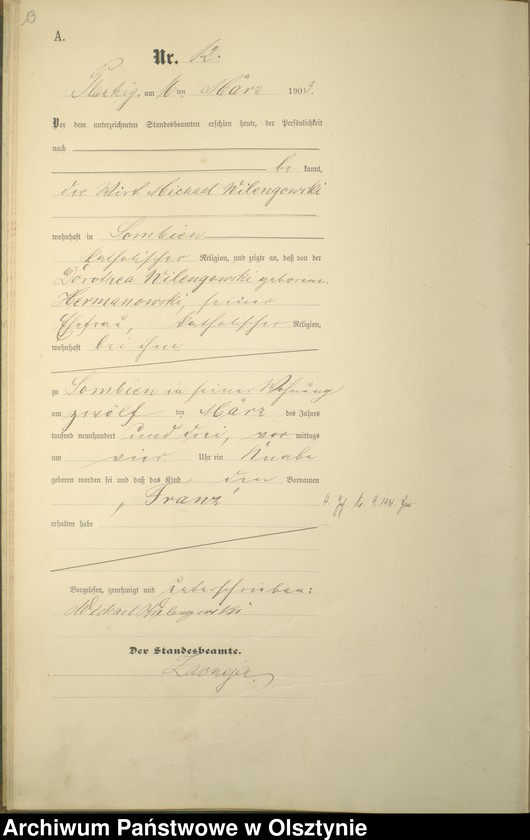 13
A.
Nr. 12.
am ten März 1903.
Vor dem unterzeichneten Standesbeamten erschien heute, der Persönlichkeit
nach
be kannt,
der Wirt Michael Wilengowski
wohnhaft in Lombien
katholischer Religion, und zeigte an, daß von der
Dorothea Wilengowski geborene
Hermanowski, seiner
Ehefrau, katholischer Religion,
wohnhaft bei ihm
zu Lombien in seiner Wohnung
am zwölf ten März des Jahres
tausend neunhundert und drei, vor mittags
um vier Uhr ein Knabe
geboren worden sei und daß das Kind den Vornamen
„Franz"
erhalten habe
Vorgelesen, genehmigt und unterschrieben:
Michael Wilengowski
Der Standesbeamte.
Archiwum Państwowe w Olsztynie